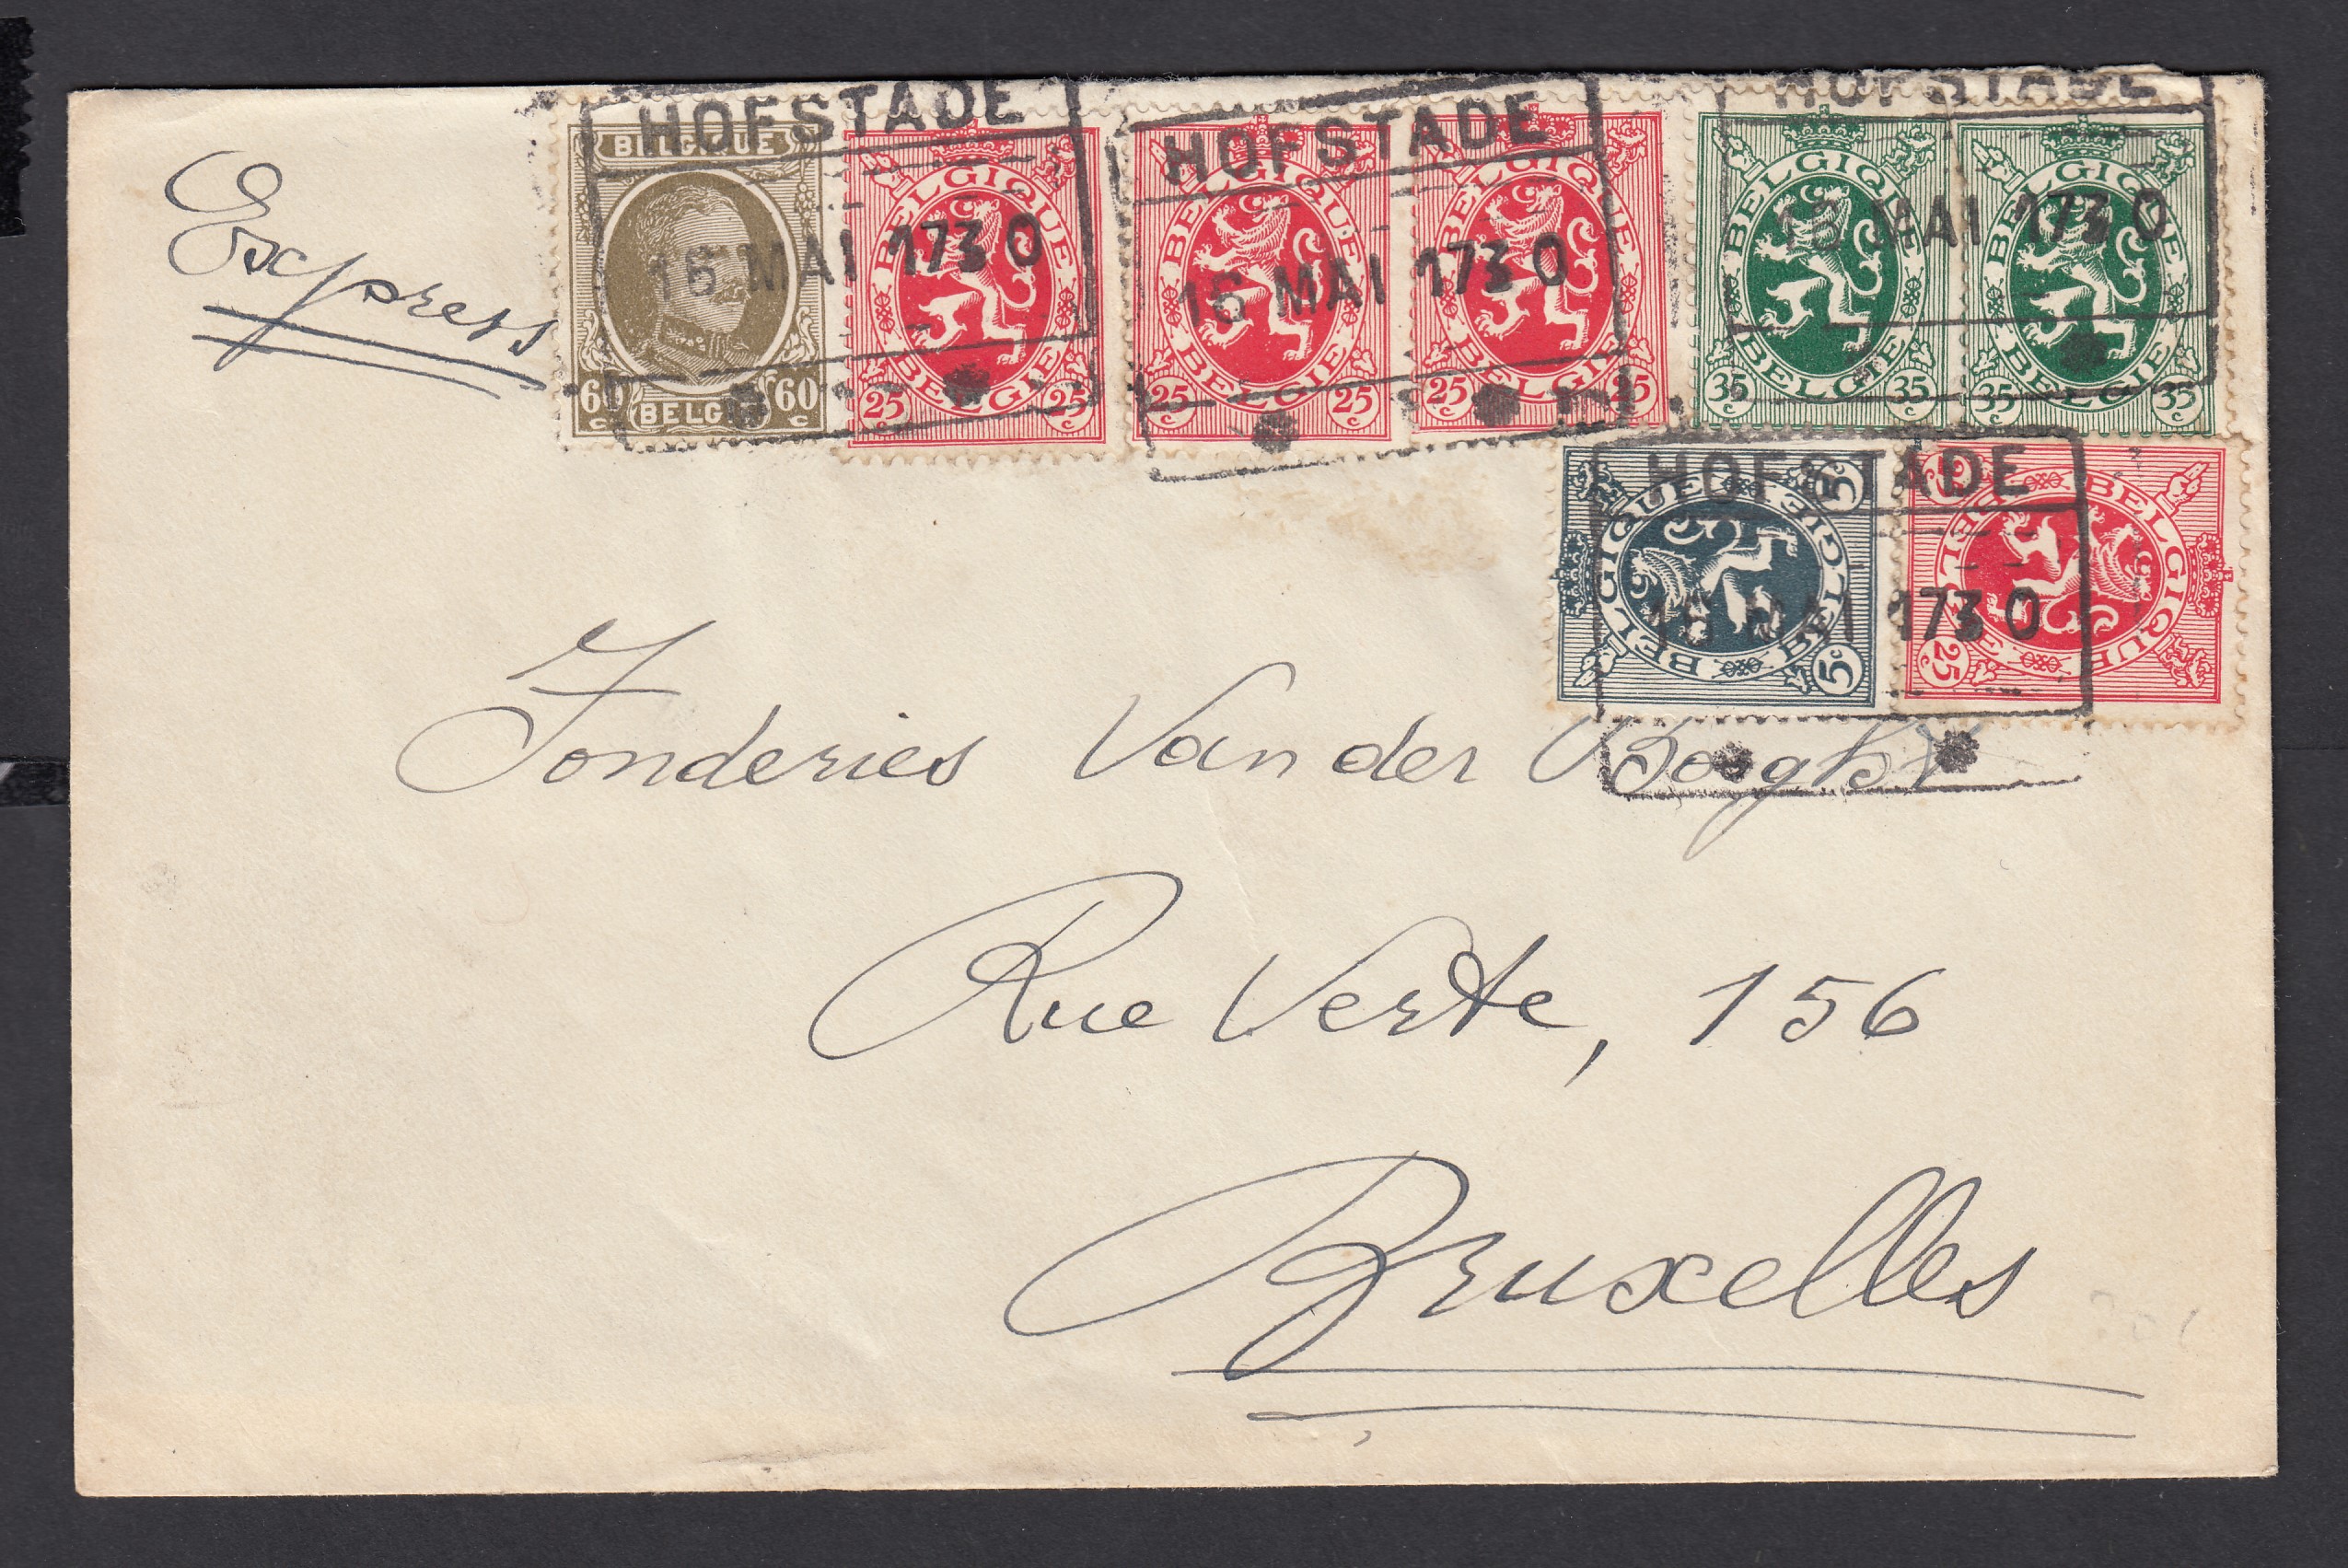 Express
HOFSTADE
16 MAI 1730
BELGIQUE
60c 60c
BELG
BELGIQUE
BELGIË
25c 25c
HOFSTADE
16 MAI 1730
BELGIQUE
BELGIË
25c 25c
BELGIQUE
BELGIË
25c 25c
HOFSTADE
16 MAI 1730
BELGIQUE
BELGIË
35c 35c
BELGIQUE
BELGIË
35c 35c
HOFSTADE
16 MAI 1730
BELGIQUE
BELGIË
5c 5c
BELGIQUE
BELGIË
25c 25c
Fonderies Van der Borght
Rue Verte, 156
Bruxelles